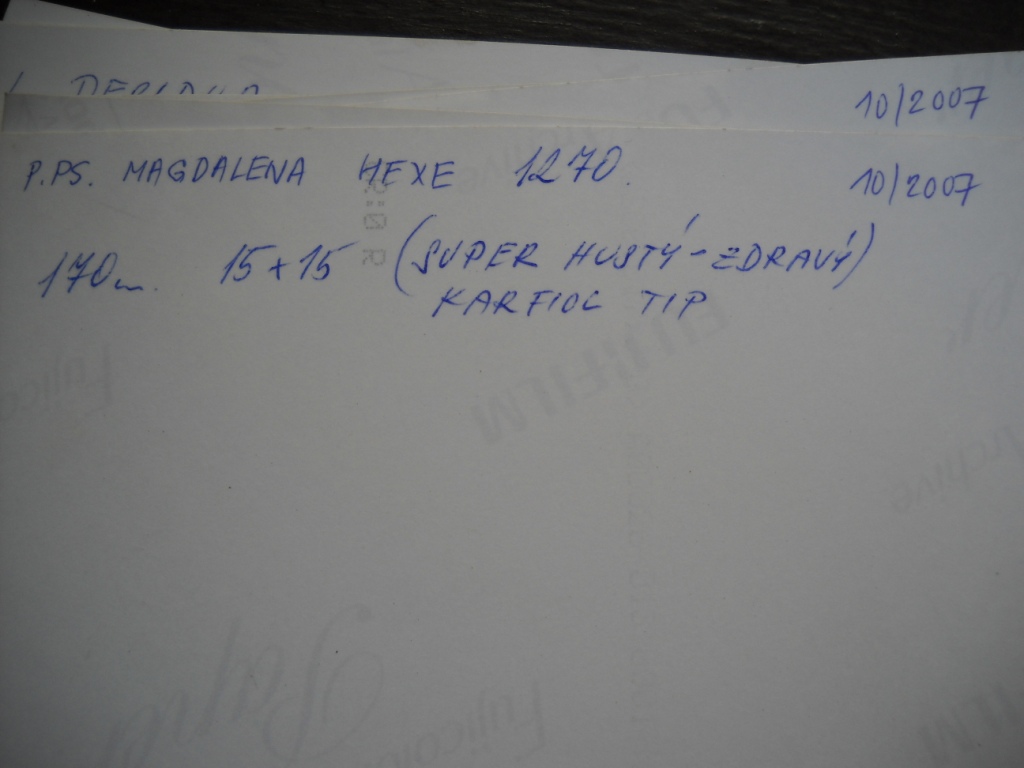 10/2007
P.PS. MAGDALENA HEXE 1270. 10/2007
170m. 15x15 (SUPER HUSTÝ-ZDRAVÝ)
KARFIOL TIP